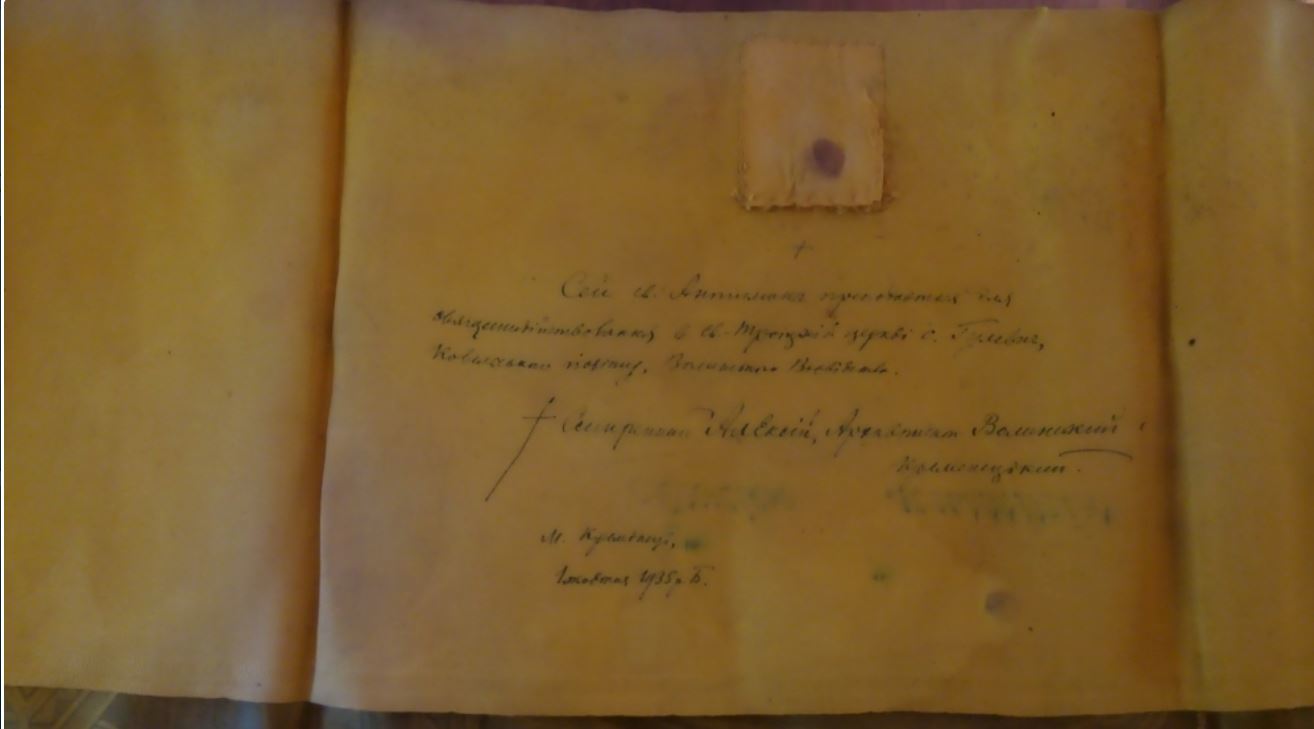 Сей св. Антиминс преподается для
священнодійствования в св.-Троїцькій церкві с. Гулевич,
Ковельського повіту, Волинського Воєвідства.
† Смиренний Алексій, Архиепископ Волинський і
Кременецький.
М. Кремянець,
1 жовтня 1935 р. Б.